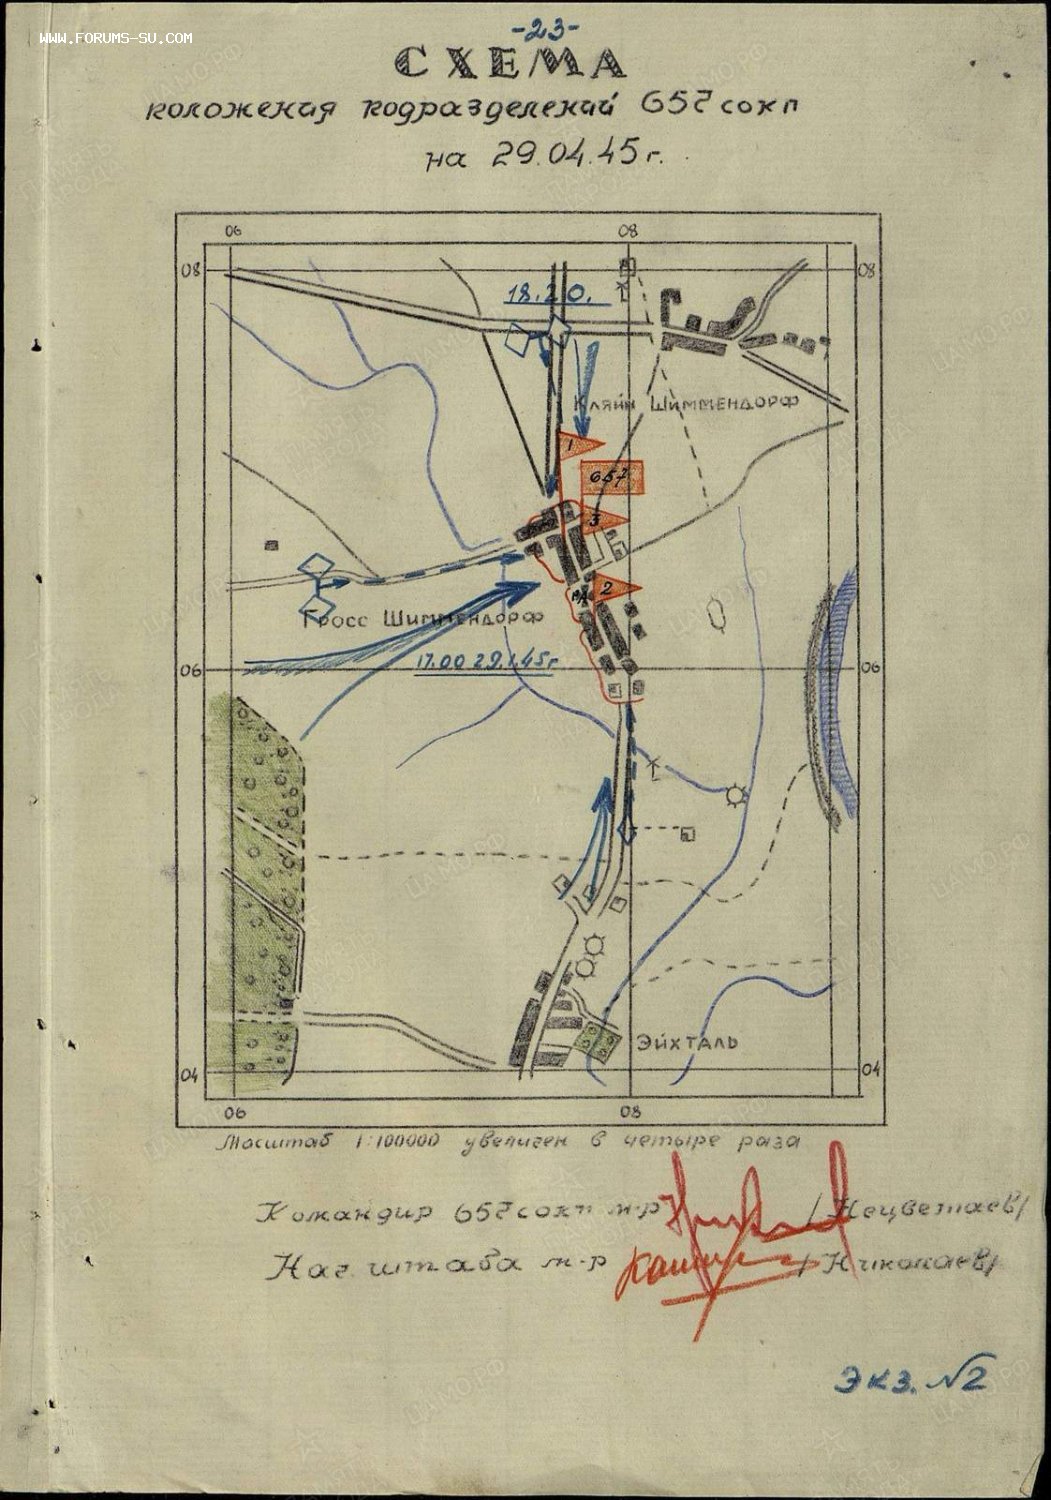 WWW.FORUMS-SU.COM
-23-
СХЕМА
положения подразделений 657 сокп
на 29.04.45г.
06 08
08 08
18.20.
Кляйн Шиммендорф
1
657
3
2
Гросс Шиммендорф
17.00 29.1.45г
06 06
Эйхталь
04 04
06 08
Масштаб 1:100000 увеличен в четыре раза
Командир 657 сокп м-р /Нецветаев/
Нач. штаба м-р /Николаев/
Экз. №2